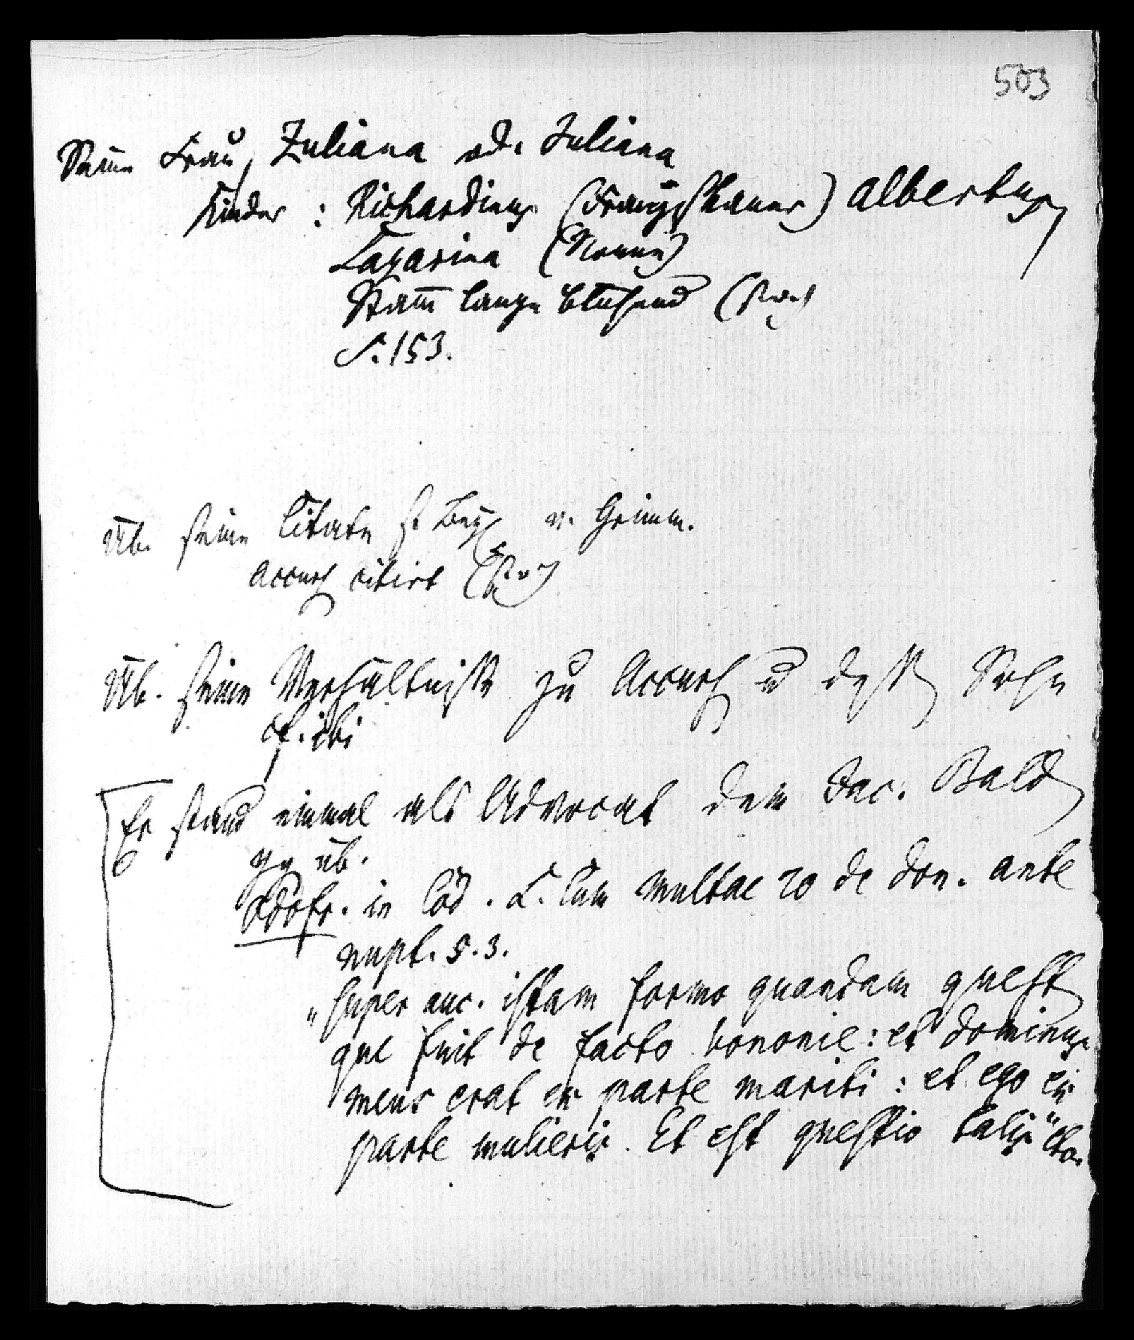 503
Seine Frau, Zuliana od. Juliana
Kinder: Richardinus (Franziskaner) Albertus,
Caxarina (Nonne)
Stam̄ lange blühend
S. 153.
Üb. seine Citate v. Grimm.
Accurs citirt
Üb. seine Verhältniße zu Accurs u deßen Sohn
cf. ibi
Er stand einmal als Advocat dem Jac. Bald
gg üb.
Odofr. in Cod. L. Cum multae 20 de don. ante
nupt. 5. 3.
„Super auc. istam formo quandam quest
que fuit de facto bononie: et dominus
meus erat ex parte mariti: et ego ex
parte mulieris. Et est questio talis“